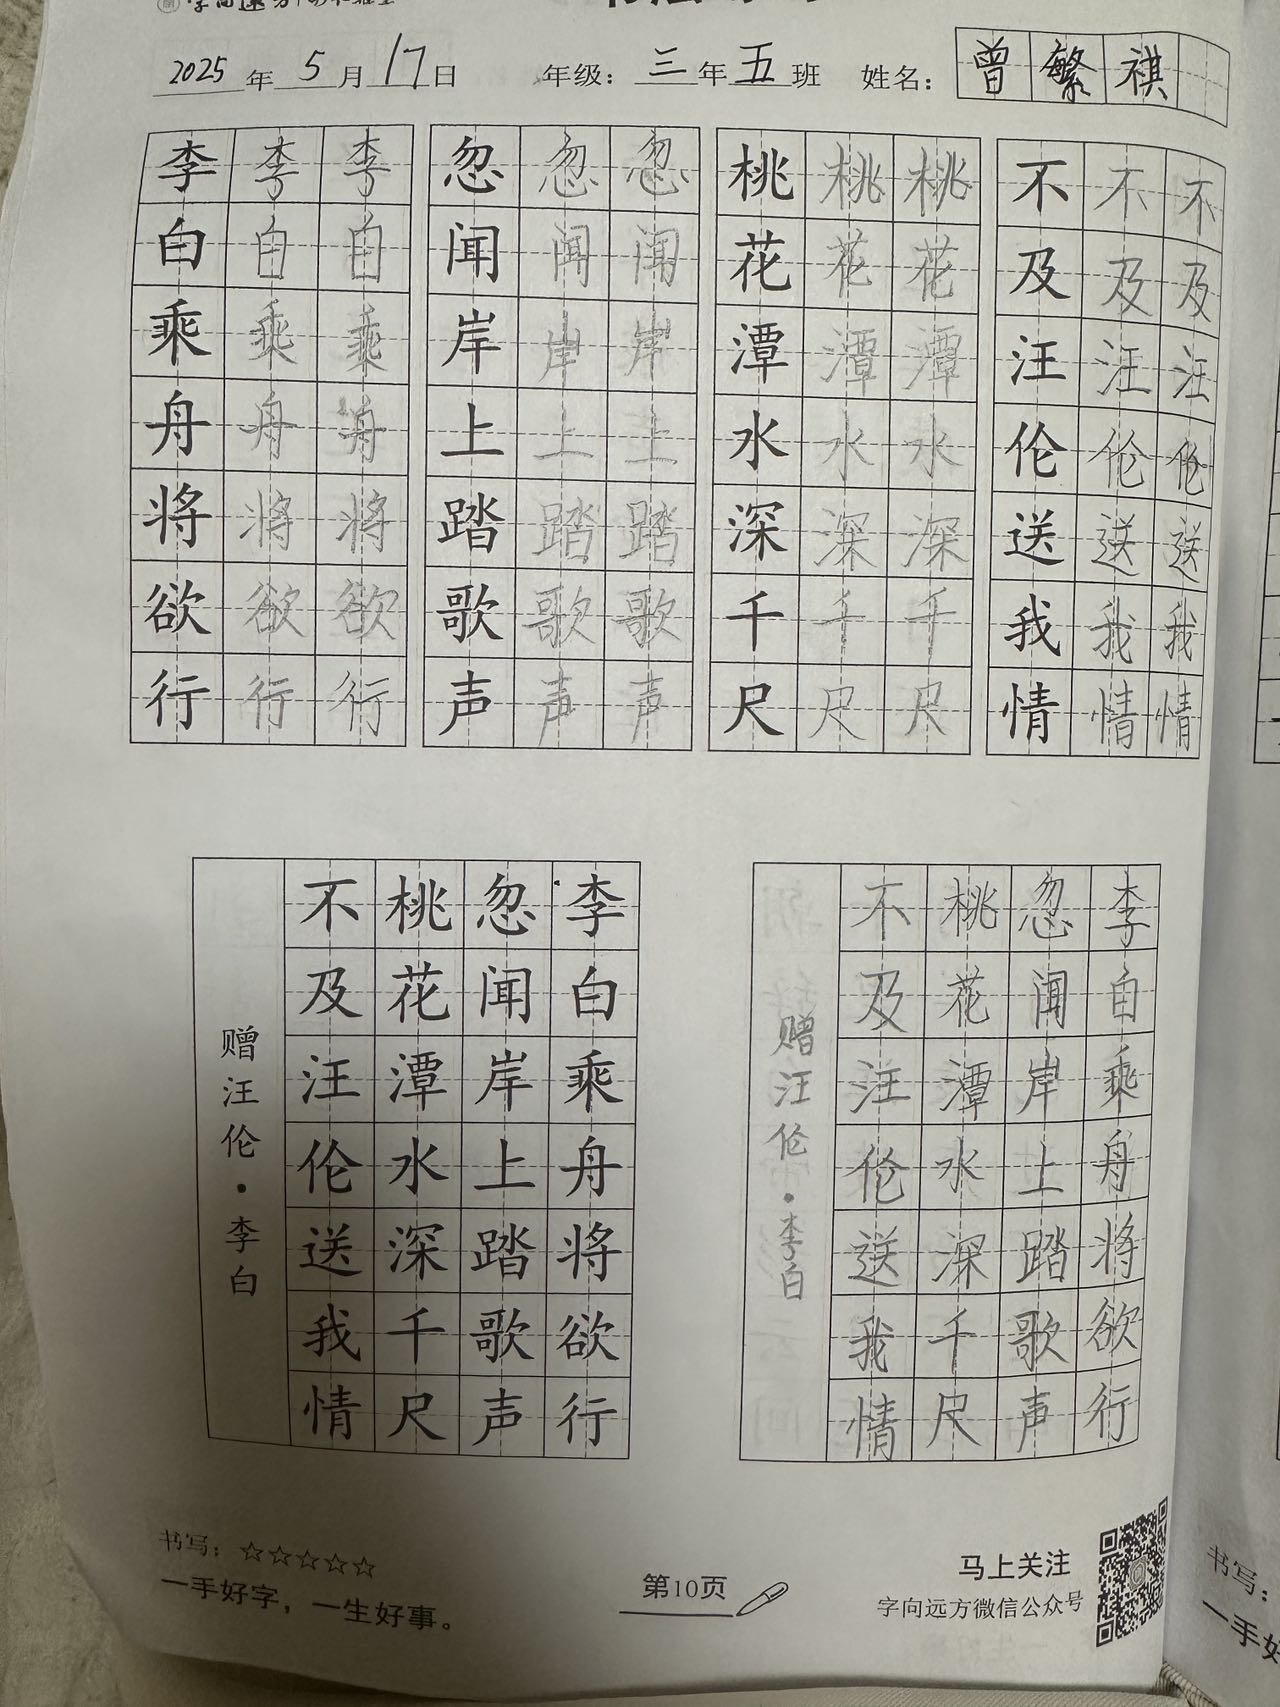 2025年5月17日 年级：三年五班 姓名：曾繁祺
李李李 忽忽忽 桃桃桃 不不不
白白白 闻闻闻 花花花 及及及
乘乘乘 岸岸岸 潭潭潭 汪汪汪
舟舟舟 上上上 水水水 伦伦伦
将将将 踏踏踏 深深深 送送送
欲欲欲 歌歌歌 千千千 我我我
行行行 声声声 尺尺尺 情情情
李白乘舟将欲行
忽闻岸上踏歌声
桃花潭水深千尺
不及汪伦送我情
赠汪伦·李白
李白乘舟将欲行
忽闻岸上踏歌声
桃花潭水深千尺
不及汪伦送我情
赠汪伦·李白
书写：☆☆☆☆☆
一手好字，一生好事。
第10页
马上关注
字向远方微信公众号
书写：
一手好